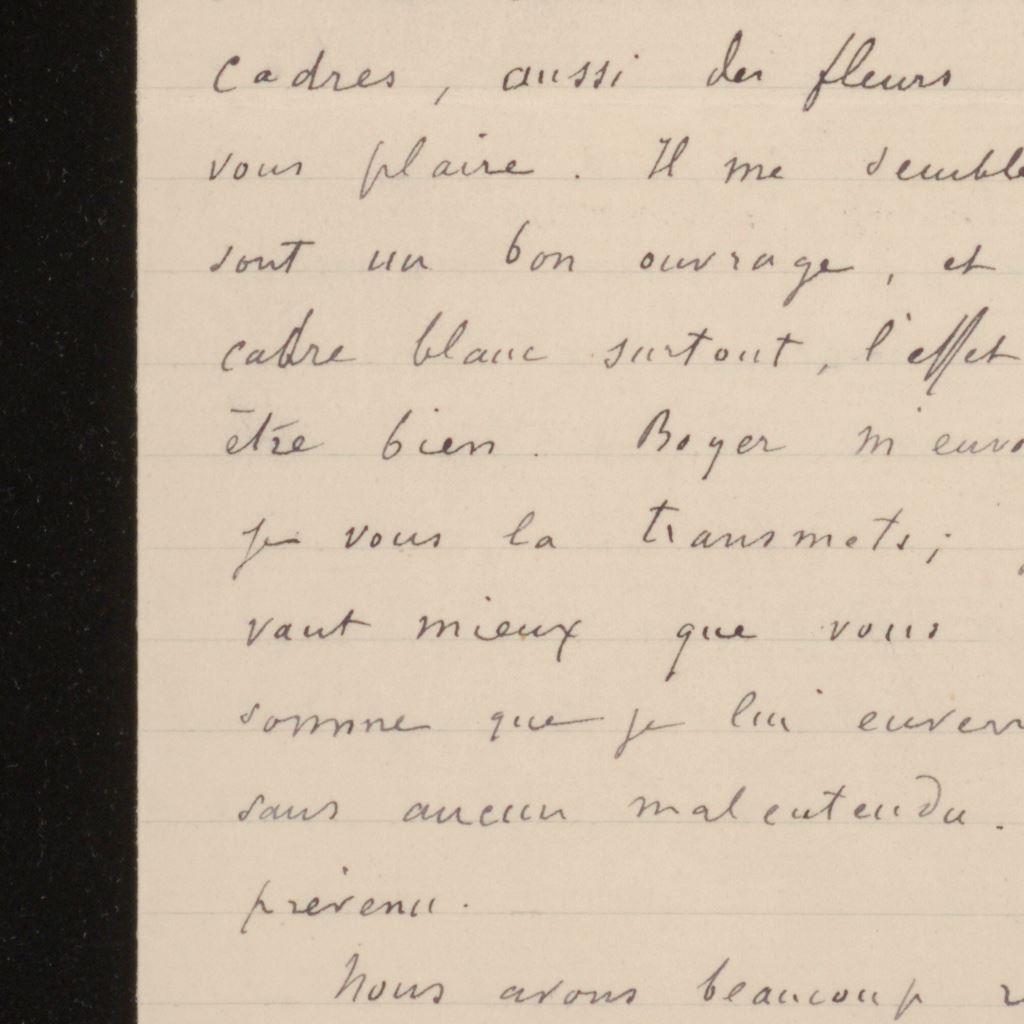 cadres, aussi des fleurs
vous plaire. Il me semble
sont un bon ouvrage, et
cadre blanc surtout, l'effet
être bien. Boyer m'envo
je vous la transmets;
vaut mieux que vous
somme que je lui enverr
sans aucun malentendu.
prévenu.
Nous avons beaucoup